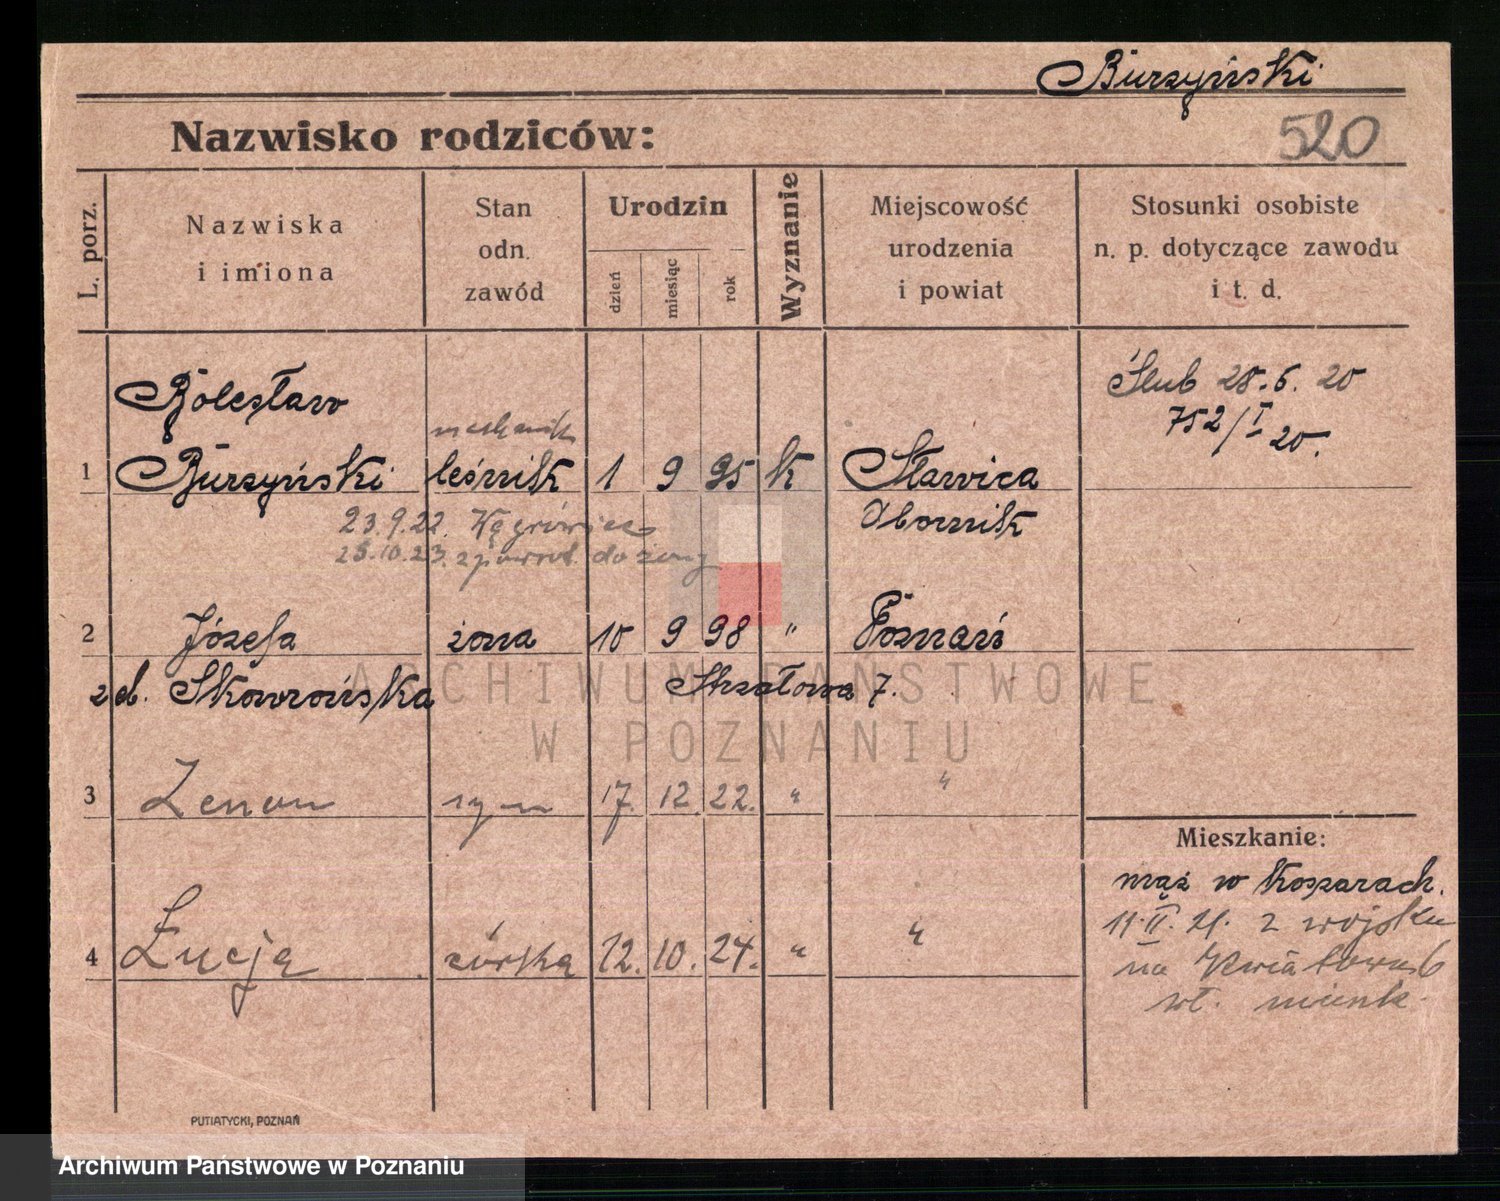 Burzyński
Nazwisko rodziców:
520
L. porz.
Nazwiska
i imiona
Stan
odn.
zawód
Urodzin
dzień
miesiąc
rok
Wyznanie
Miejscowość
urodzenia
i powiat
Stosunki osobiste
n. p. dotyczące zawodu
i t. d.
Ślub 28.6. 20
752/I 20.
Bolesław
mechanik
1 Burzyński leśnik 1 9 95 k Sławica
Obornik
23.9.22. Wągrówiec
25.10.23. z powrot. do żony
2 Józefa żona 10 9 98 " Poznań
zd. Skowrońska Strzałowa 7.
3 Zenon syn 17. 12. 22. " "
Mieszkanie:
mąż w koszarach.
11.II.21. z wojska
na
wł. mieszk.
4 Łucja córka 12. 10. 24. " "
PUTIATYCKI, POZNAŃ
ARCHIWUM PAŃSTWOWE
W POZNANIU
Archiwum Państwowe w Poznaniu